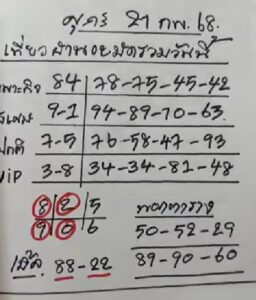 ศุกร์ 21 กพ. 68.
เที่ยว ฮานอยมัดรวมวันนี้
เฉพาะกิจ 84 78-75-45-42
พิเศษ 9-1 94-89-70-63
ปกติ 7-5 76-58-47-93
ViP 3-8 34-34-81-48
8 2 5
9 0 6
พกตาราง
50-52-29
89-90-60
เบิ้ล 88-22